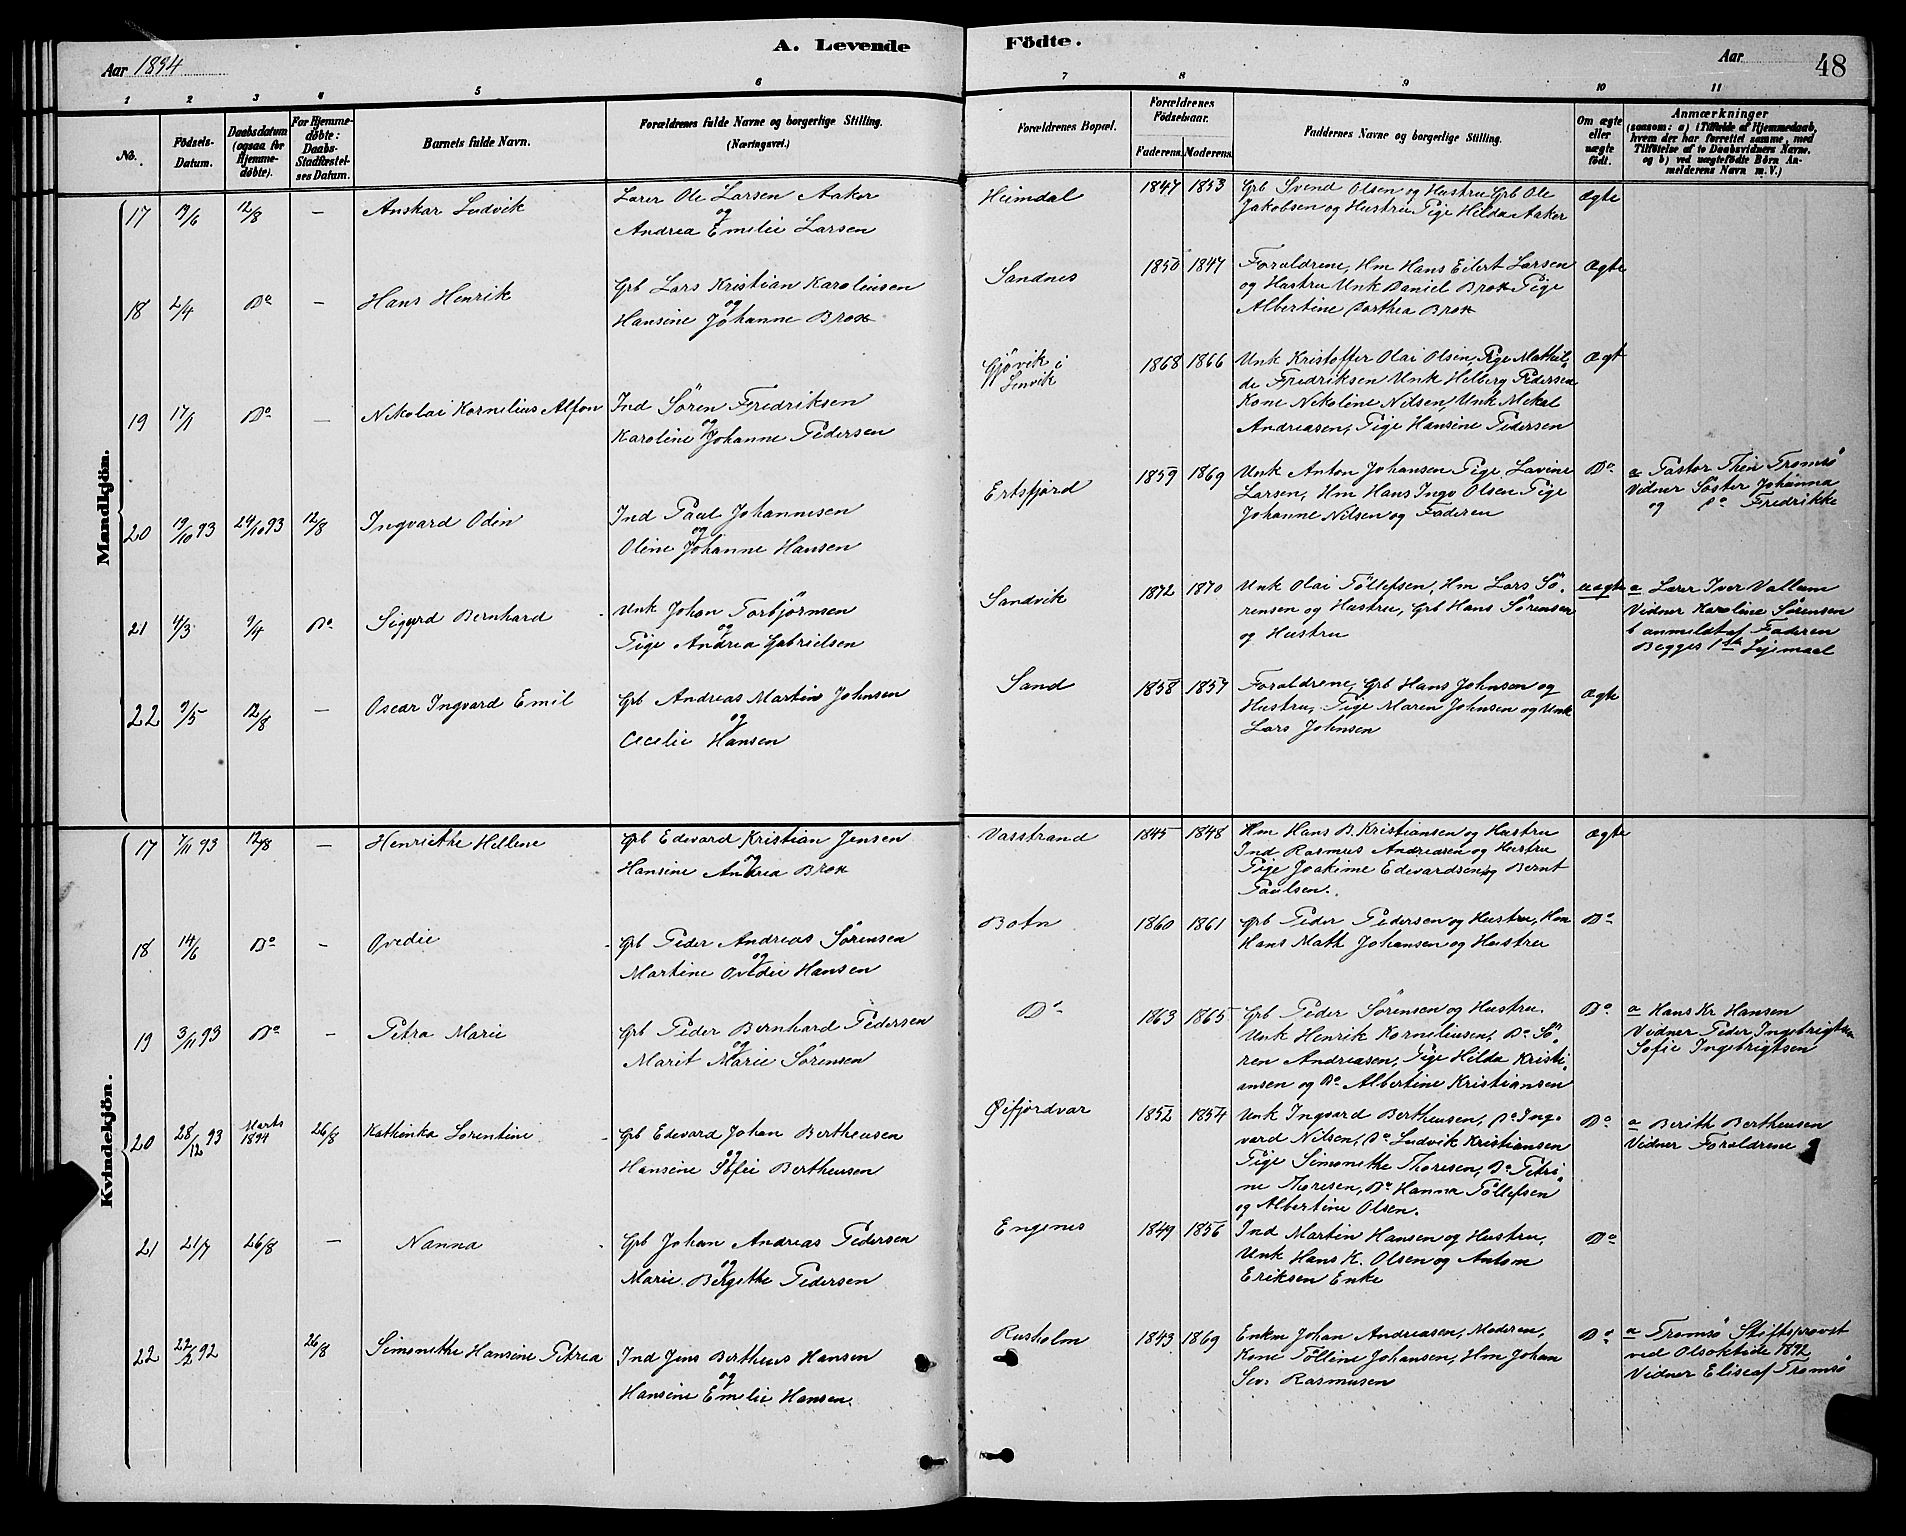 A. Levende Födte.
Aar 1894
Aar
48
1 2 3 4 5 6 7 8 9 10 11
No.
Födsels-Datum.
Daabsdatum (ogsaa for Hjemme-døbte).
For Hjemme-døbte: Daabs-Stadfæstel-ses Datum.
Barnets fulde Navn.
Forældrenes fulde Navne og borgerlige Stilling.
(Næringsvei.)
Forældrenes Bopæl.
Forældrenes Födselsaar.
Faderens. Moderens.
Faddernes Navne og borgerlige Stilling.
Om ægte eller uægte födt.
Anmærkninger
(saasom: a) i Tilfælde af Hjemmedaab,
hvem der har forrettet samme, med
Tilföielse af to Daabsvidners Navne,
og b) ved uægtefödte Börn An-
melderens Navn m. V.)
Mandkjön.
17 19/6 12/8 — Anskar Ludvik
Lærer Ole Larsen Aaker
og
Andrea Emelie Larsen
Heimdal 1847 1853
Grb Svend Olsen og Hustru Grb Ole
Jakobsen og Hustru Pige Hilda Aaker
Ægte
18 2/4 Do — Hans Henrik
Grb Lars Kristian Karoliusen
og
Hansine Johanne Brox
Sandnes 1850 1847
Forældrene, Hm Hans Eilert Larsen
og Hustru Unk Daniel Brox Pige
Albertine Dorthea Brox
Ægte
19 17/1 Do — Nikolai Kornelius Alfon
Ind Sören Fredriksen
og
Karoline Johanne Pedersen
Gjövik i
Lenvik
1868 1866
Unk Kristoffer Olai Olsen, Pige Mathil
de Fredriksen Unk Helberg Pedersen
Kone Nikoline Nilsen, Unk Mekal
Andreasen, Pige Hansine Pedersen
Ægt
20 19/10 93 24/10 93 12/8 Ingvard Odin
Ind Paul Johannesen
og
Oline Johanne Hansen
Ertsfjord 1859 1869
Unk Anton Johansen Pige Lavine
Larsen, Hm Hans Ingv Olsen Pige
Johanne Nilsen og Faderen
Do
a Pastor Thein Tromsö
Vidner Söster Johanna
og Do Fredrikke
21 4/3 9/4 Do Sigurd Bernhard
Unk Johan Torbjörnsen
og
Pige Andrea Gabrielsen
Sandvik 1872 1870
Unk Olai Töllefsen, Hm Lars Sö
rensen og Hustru, Grb Hans Sörensen
og Hustru
uægte
a Lærer Iver Vallum
Vidner Karoline Sörensen
b anmeldt af Faderen
Begges 1ste Lejermaal
22 9/5 12/8 — Oscar Ingvard Emil
Grb Andreas Martin Johnsen
og
Cecelie Hansen
Sand 1858 1857
Forældrene, Grb Hans Johnsen og
Hustru, Pige Maren Johnsen og Unk
Lars Johnsen
Ægte
Kvindekjön.
17 7/11 93 12/8 — Henriethe Hellene
Grb Edevard Kristian Jensen
og
Hansine Andrea Brox
Vasstrand 1845 1848
Hm Hans B. Kristiansen og Hustru
Ind Rasmus Andreasen og Hustru
Pige Joakime Edevardsen og Bernt
Paulsen.
Ægte
18 14/6 Do — Ovedie
Grb Peder Andreas Sörensen
og
Martine Ovedie Hansen
Botn 1860 1861
Grb Peder Pedersen og Hustru, Hm
Hans Math Johansen og Hustru
Do
19 3/11 93 Do — Petra Marie
Grb Peder Bernhard Pedersen
og
Marit Marie Sörensen
Do 1863 1865
Grb Peder Sörensen og Hustru
Unk Henrik Korneliusen, Do Sö
ren Andreasen, Pige Hilda Kristi
ansen og Do Albertine Kristiansen
Do
a Hans Kr Hansen
Vidner Peder Ingebrigtsen
Sofie Ingebrigtsen
20 28/12 93 Marts 1894 26/8 Kathinka Lorentine
Grb Edevard Johan Bertheusen
og
Hansine Sofie Bertheusen
Øifjordvær 1852 1854
Unk Ingvard Bertheusen, Do Ing
vard Nilsen, Do Ludvik Kristiansen
Pige Simonethe Thoresen, Do Petri
ne Thoresen, Do Hanna Töllefsen
og Albertine Olsen.
Do
a Berith Bertheusen
Vidner Forældrene
21 21/7 26/8 — Nanna
Grb Johan Andreas Pedersen
og
Marie Bergithe Pedersen
Engenes 1849 1856
Ind Martin Hansen og Hustru,
Unk Hans K. Olsen og Antom
Eriksen Enke
Do
22 22/2 92 26/8 Simonethe Hansine Petrea
Ind Jens Bertheus Hansen
og
Hansine Emelie Hansen
Rusholm 1843 1869
Enkm Johan Andreasen, Moderen,
Kone Tölline Johansen, Hm Johan
Sev. Rasmusen
Do
a Tromsö Stiftsprovst
ved Olsoktide 1892
Vidner Elise af Tromsö